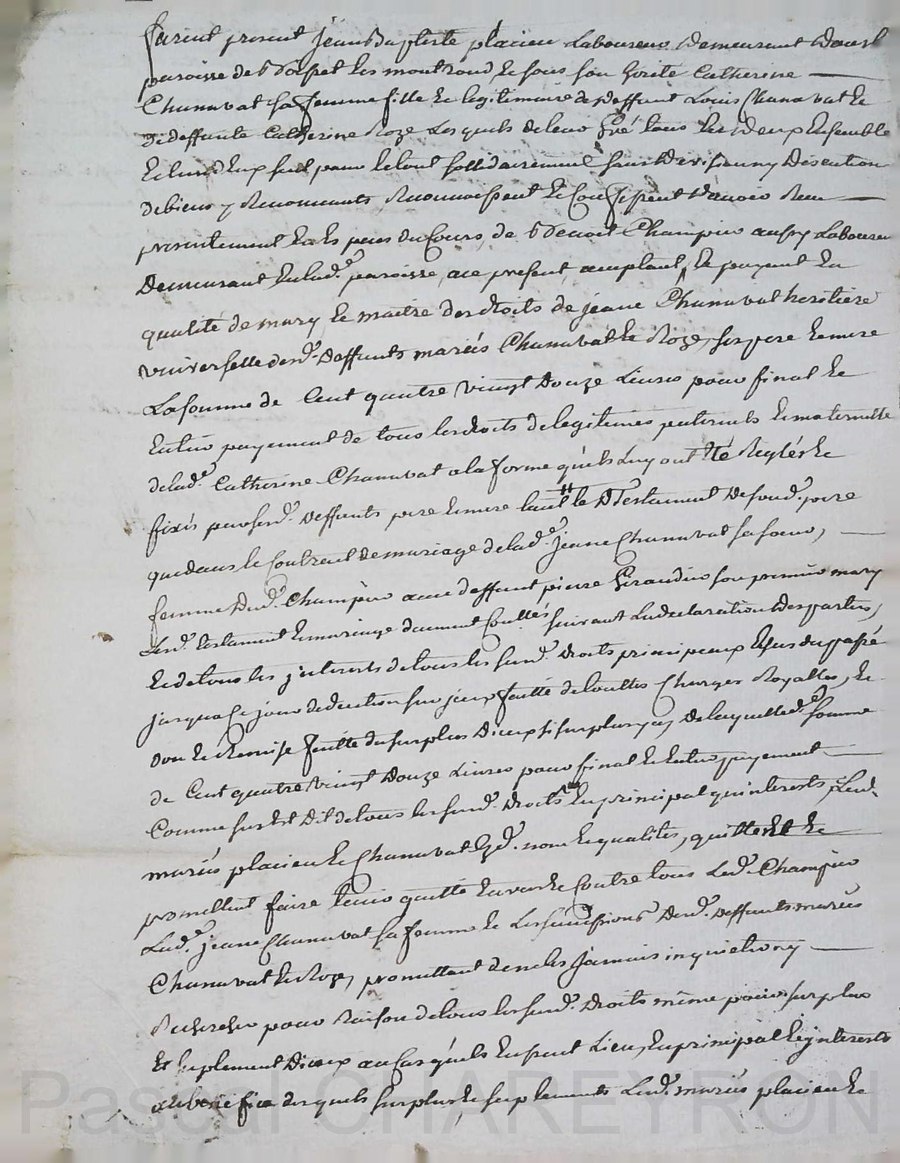 furent present jean Baptiste placieu Laboureur demeurant
paroisse de les montrond et sous son Catherine
Chanavat sa femme fille et legitimaire de deffunt Louis Chanavat et
de deffunte Catherine Roze Lesquels de leur gré tous les deux Ensemble
et lun deux seul pour le tout sollidairement sans division ny discution
de biens y Renonceants, Reconnoissent et Confessent davoir Receu
presentement des du Cours, de Benoit Champier aussy Laboureur
Demeurant en lad.e paroisse, ace present acceptant, et payant en
qualité de mary et maitre des droits de jeanne Chanavat heritiere
universelle desd. deffunts mariés Chanavat et Roze, ses pere et mere
La somme de Cent quatre vingt douze Livres pour final et
Entier payement de tous les droits de legitimes paternels et maternelle
de lad.e Catherine Chanavat a la forme quils luy ont été Reglés et
fixés par lesd. deffunts pere et mere tant le Testament de son d. pere
que dans le Contract de mariage de lad.e jeanne Chanavat sa soeur,
femme dud. Champier avec deffunt pierre Girardier son premier mary
Lesd. testament et mariage duement Conttés suivant La declaration des parties,
et de tous les jnterests de tous les susd. droits principeaux Echus du passé
jusqua Ce jour deduction sur jceux faitte de touttes Charges Royalles, et
don et Remise faitte du surplus diceux si surplus y a, de laquelle d.e somme
de Cent quatre vingt douze Livres pour final et Entier payement
Comme sus est dit de tous les susd. droits En principal qu'interests, Lesd.
mariés placieu et Chanavat Esd. nom et qualités, quittent et
promettent faire tenir quitte Envers et Contre tous Led. Champier
Lad. jeanne Chanavat sa femme et Les successions desd. deffunts mariés
Chanavat et Roze, promettant de ne les jamais inquieter ny
Rechercher pour Raison de tous les susd. droits même pour surplus
et suplement diceux au Cas quils Eussent Lieu, En principal et jnterests
au benefice desquels surplus et suplements Lesd. mariés placieu et
Pascal CHAREYRON